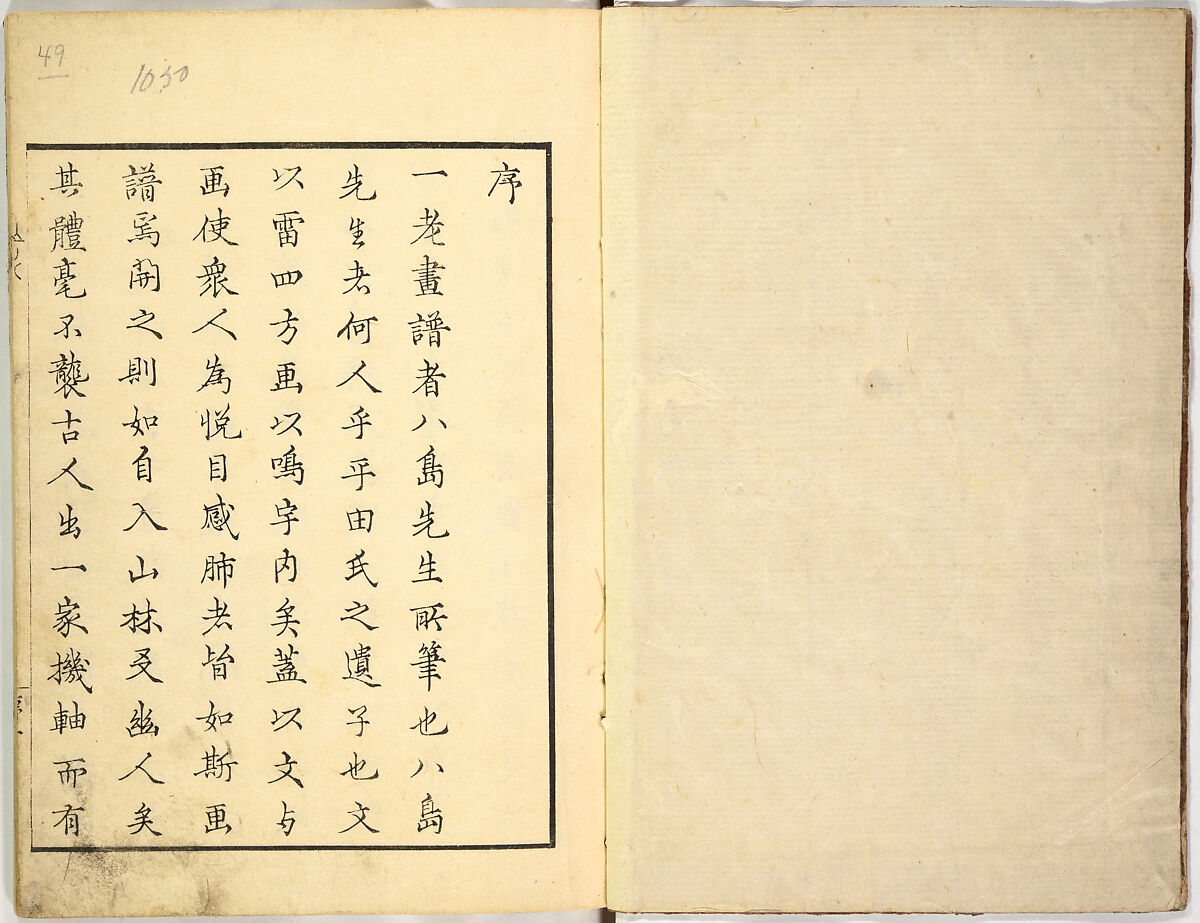 49
1030
序
一老畫譜者八島先生所筆也八島
先生者何人乎平田氏之遺子也文
以雷四方画以鳴宇内矣蓋以文与
画使衆人為悦目感肺者皆如斯画
譜焉開之則如自入山林爻幽人矣
其體毫不襲古人出一家機軸而有